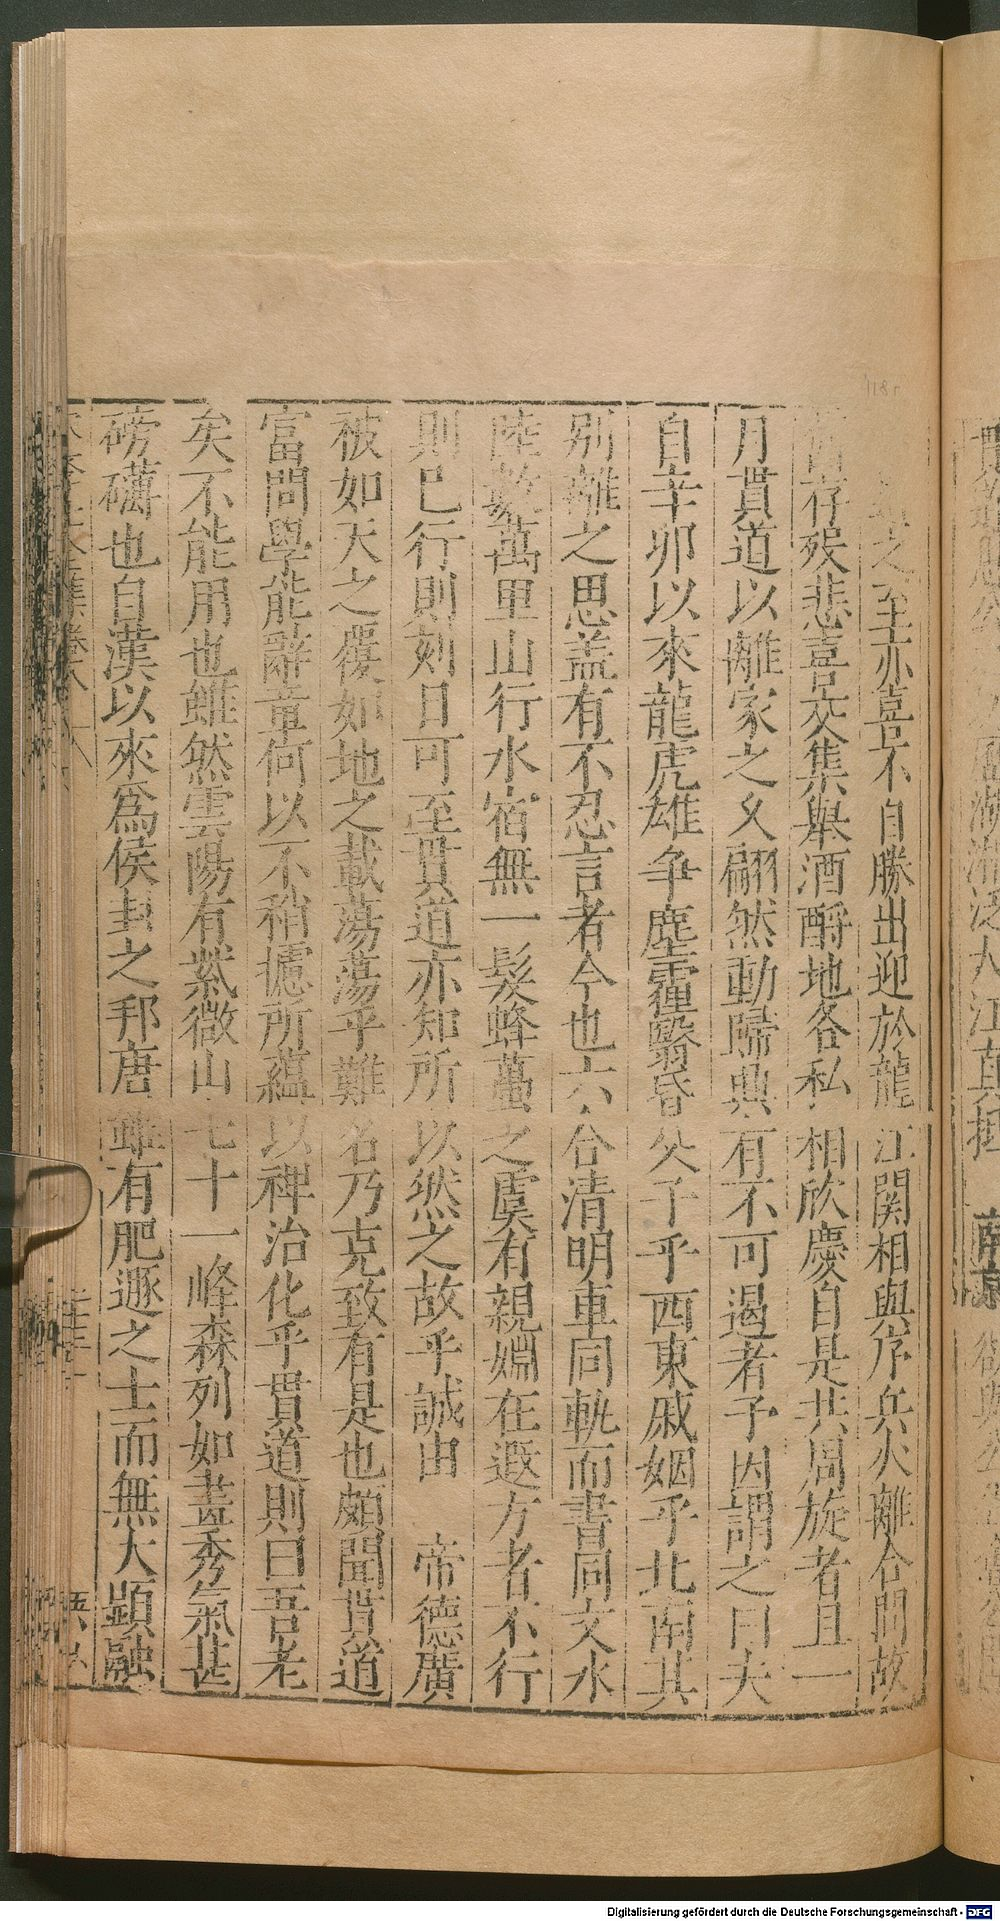 之至亦喜不自勝出迎於龍江關相與序兵火離合問故
存歿悲喜交集舉酒酹地各私相欣慶自是共周旋者且一
月貫道以離家之久翩然動歸興有不可遏者予因謂之曰夫
自辛卯以來龍虎雄爭塵霾翳昏父子乎西東戚姻乎北南其
別離之思盖有不忍言者今也六合清明車同軌而書同文水
陸數萬里山行水宿無一髮蜂蠆之虞有親婣在遐方者不行
則已行則刻日可至貫道亦知所以然之故乎誠由 帝德廣
被如天之覆如地之載蕩蕩乎難名乃克致有是也頗聞貫道
富問學能辭章何以不稍攄所蘊以裨治化乎貫道則曰吾老
矣不能用也雖然雲陽有紫微山七十一峰森列如畫秀氣甚
磅礴也自漢以來爲侯封之邦唐雖有肥遯之士而無大顯融
Digitalisierung gefördert durch die Deutsche Forschungsgemeinschaft - DFG